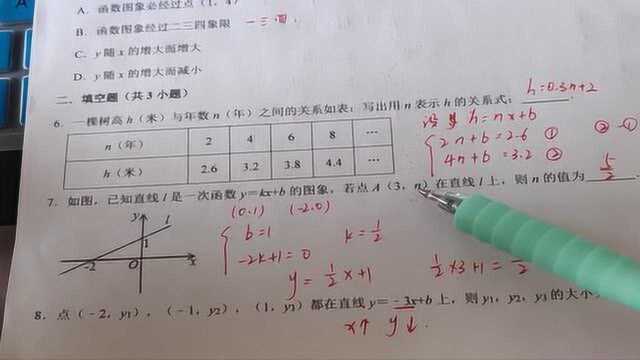 A. 函数图象必经过点（1，4）
B. 函数图象经过二三四象限 一三
C. y 随 x 的增大而增大
D. y 随 x 的增大而减小
二．填空题（共 3 小题）
6．一棵树高 h（米）与年数 n（年）之间的关系如表：写出用 n 表示 h 的关系式： h=0.3n+2
n（年） 2 4 6 8 …
h（米） 2.6 3.2 3.8 4.4 …
h=nx+b
2n+b=2.6 ①
4n+b=3.2 ②
②-①
7．如图，已知直线 l 是一次函数 y=kx+b 的图象，若点 A（3，n）在直线 l 上，则 n 的值为 5/2
(0.1) (-2.0)
b=1
-2k+1=0
k=1/2
y=1/2x+1
1/2×3+1=
y l 1 -2 O x
8．点（-2，y1），（-1，y2），（1，y3）都在直线 y=-3x+b 上，则 y1，y2，y3 的大小
x↑ y↓.